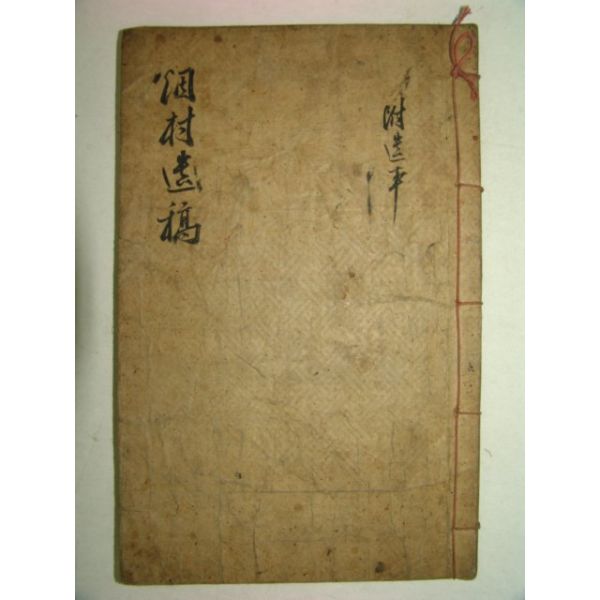 烟村遺稿
附遺事